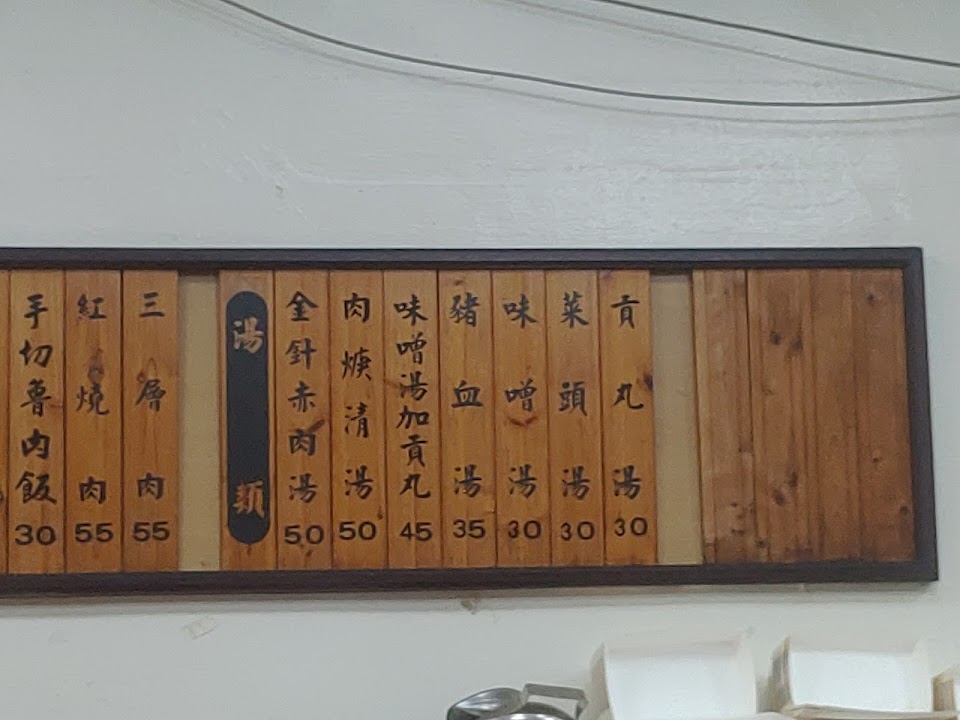 手切魯肉飯 30
紅燒肉 55
三層肉 55
湯類
金針赤肉湯 50
肉焿清湯 50
味噌湯加貢丸 45
豬血湯 35
味噌湯 30
菜頭湯 30
貢丸湯 30